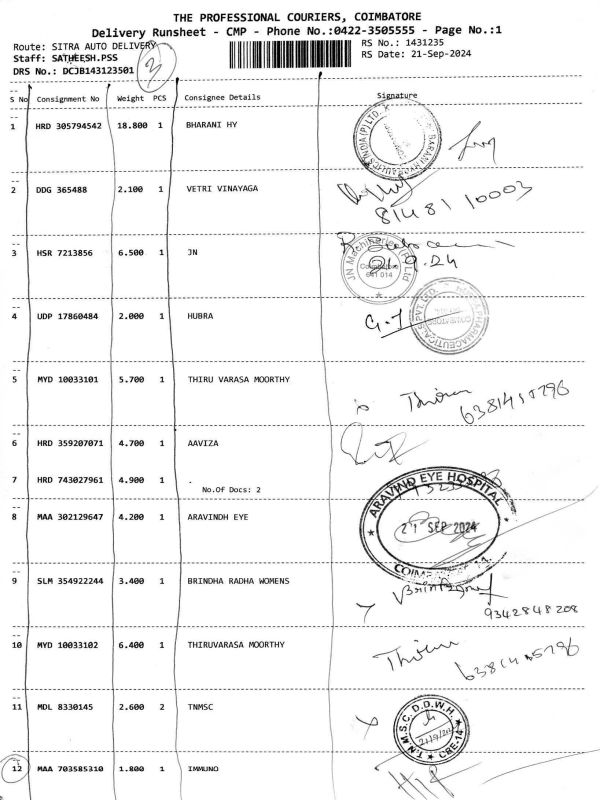 THE PROFESSIONAL COURIERS, COIMBATORE
Delivery Runsheet - CMP - Phone No.:0422-3505555 - Page No.:1
Route: SITRA AUTO DELIVERY
RS No.: 1431235
Staff: SATHEESH.PSS
RS Date: 21-Sep-2024
DRS No.: DCJB143123501
3
S No Consignment No Weight PCS Consignee Details Signature
1 HRD 305794542 18.800 1 BHARANI HY
2 DDG 365488 2.100 1 VETRI VINAYAGA
8148110003
3 HSR 7213856 6.500 1 JN
JN Machineries (P) Ltd
Coimbatore
641 014
21.9.24
4 UDP 17860484 2.000 1 HUBRA
G.J
5 MYD 10033101 5.700 1 THIRU VARASA MOORTHY
6 HRD 359207071 4.700 1 AAVIZA
7 HRD 743027961 4.900 1 .
No.Of Docs: 2
8 MAA 302129647 4.200 1 ARAVINDH EYE
ARAVIND EYE HOSPITAL
21 SEP 2024
9 SLM 354922244 3.400 1 BRINDHA RADHA WOMENS
9342848208
10 MYD 10033102 6.400 1 THIRUVARASA MOORTHY
11 MDL 8330145 2.600 2 TNMSC
T.N.M.S.C. D.D.W.H. CBE-14
12 MAA 703585310 1.800 1 IMMUNO